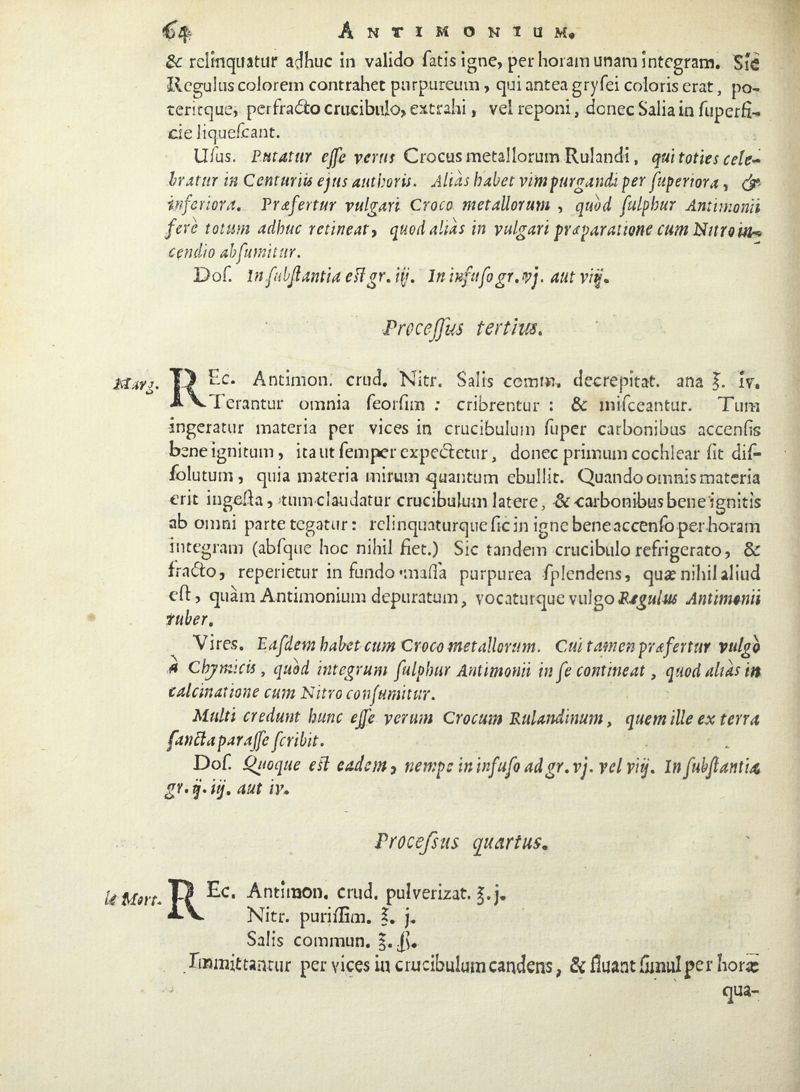 64 ANTIMONIUM.
& relinquatur adhuc in valido satis igne, per horam unam integram. Sic
Regulus colorem contrahet purpureum, qui antea grysei coloris erat, po-
teritque, perfracto crucibulo, extrahi, vel reponi, donec Salia in superfi-
cie liquescant.
Usus. Putatur esse verus Crocus metallorum Rulandi, qui toties cele-
bratur in Centuriis ejus authoris. Aliàs habet vim purgandi per superiora, &
inferiora. Præfertur vulgari Croco metallorum, quòd sulphur Antimonii
ferè totum adhuc retineat, quod aliàs in vulgari præparatione cum Nitro in-
cendio absumitur.
Dos. In substantia est gr. iij. In infuso gr. vj. aut viij.
Processus tertius.
Marg. REc. Antimon. crud. Nitr. Salis comm. decrepitat. ana ℥. iv.
Terantur omnia seorsim : cribrentur : & misceantur. Tum
ingeratur materia per vices in crucibulum super carbonibus accensis
bene ignitum, ita ut semper expectetur, donec primum cochlear sit dis-
solutum, quia materia mirum quantum ebullit. Quando omnis materia
erit ingesta, tum claudatur crucibulum latere, & carbonibus bene ignitis
ab omni parte tegatur : relinquaturque sic in igne bene accenso per horam
integram (absque hoc nihil fiet.) Sic tandem crucibulo refrigerato, &
fracto, reperietur in fundo massa purpurea splendens, quæ nihil aliud
est, quàm Antimonium depuratum, vocaturque vulgo Regulus Antimonii
ruber.
Vires. Easdem habet cum Croco metallorum. Cui tamen præfertur vulgò
à Chymicis, quòd integrum sulphur Antimonii in se contineat, quod aliàs in
calcinatione cum Nitro consumitur.
Multi credunt hunc esse verum Crocum Rulandinum, quem ille ex terra
sancta parasse scribit.
Dos. Quoque est eadem, nempe in infuso ad gr. vj. vel viij. In substantia
gr. ij. iij. aut iv.
Processus quartus.
le Mort. REc. Antimon. crud. pulverizat. ℥. j.
Nitr. purissim. ℥. j.
Salis commun. ℥. ß.
Immittantur per vices in crucibulum candens, & fluant simul per horæ
qua-